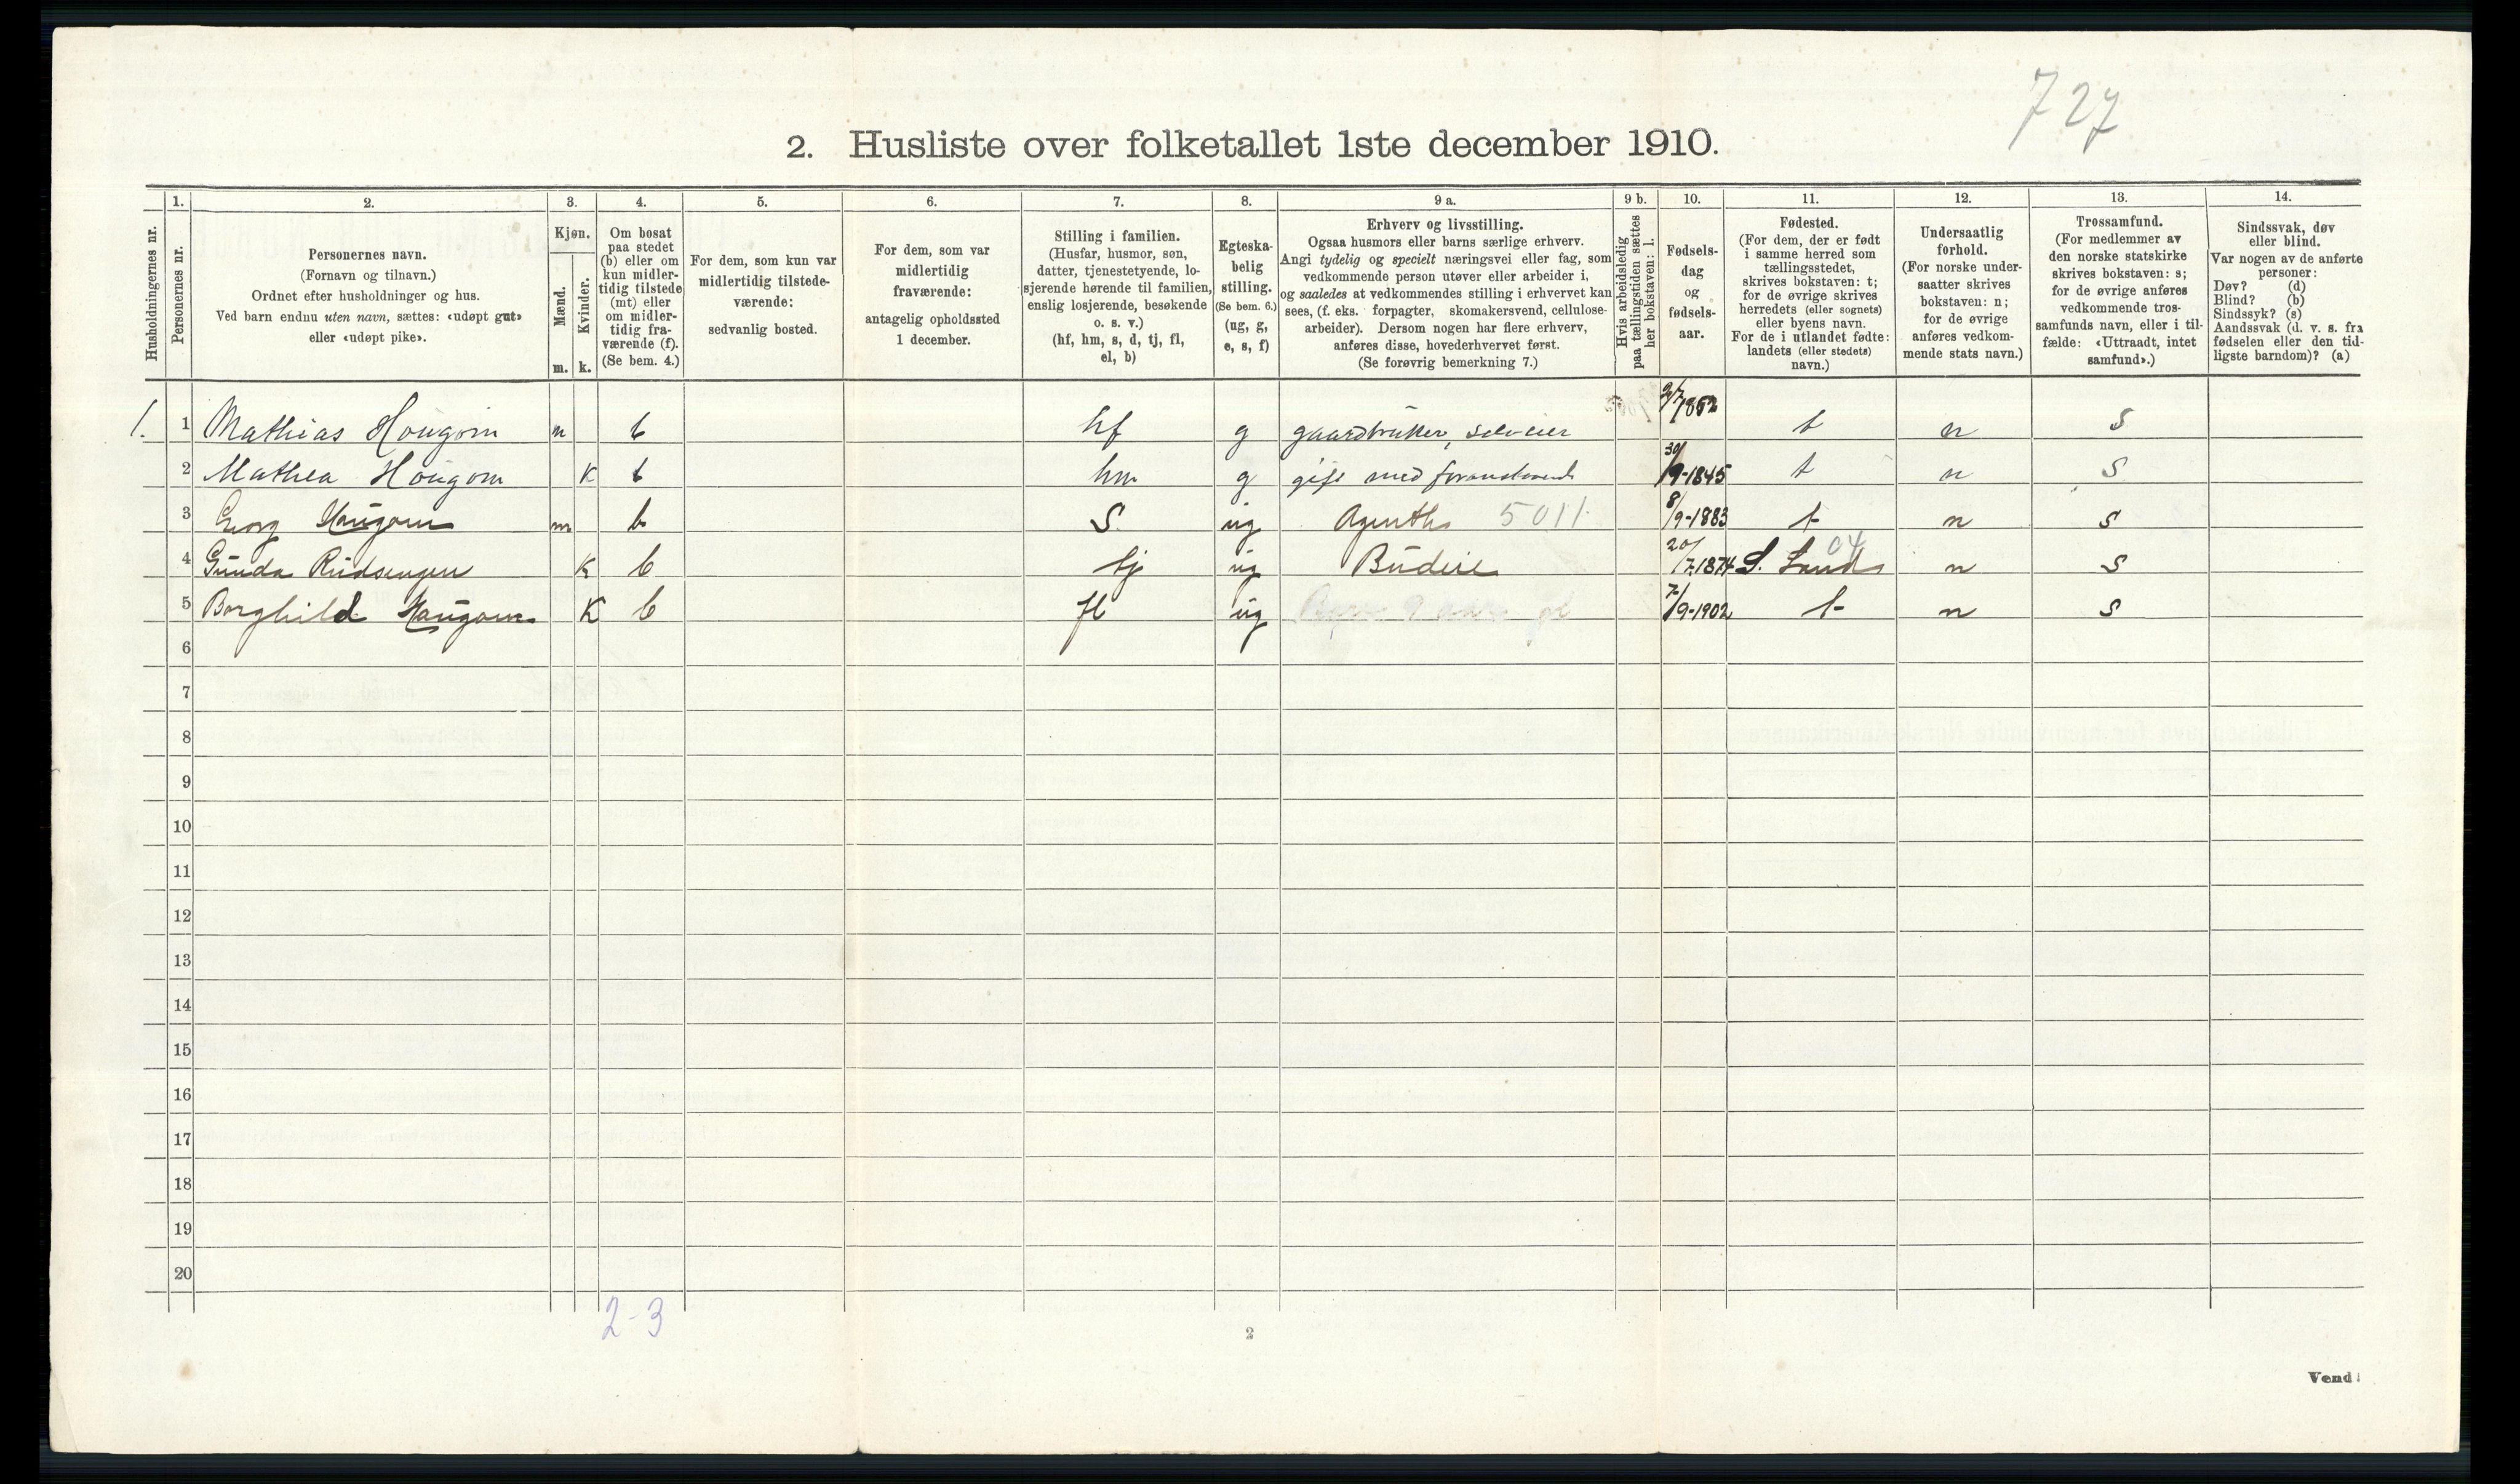 727
2. Husliste over folketallet 1ste december 1910.
Husholdningernes nr.
1.
Personernes nr.
2.
Personernes navn.
(Fornavn og tilnavn.)
Ordnet efter husholdninger og hus.
Ved barn endnu uten navn, sættes: «udøpt gut»
eller «udøpt pike».
3.
Kjøn.
Mænd.
Kvinder.
m. k.
4.
Om bosat
paa stedet
(b) eller om
kun midler-
tidig tilstede
(mt) eller
om midler-
tidig fra-
værende (f).
(Se bem. 4.)
5.
For dem, som kun var
midlertidig tilstede-
værende:
sedvanlig bosted.
6.
For dem, som var
midlertidig
fraværende:
antagelig opholdssted
1 december.
7.
Stilling i familien.
(Husfar, husmor, søn,
datter, tjenestetyende, lo-
sjerende hørende til familien,
enslig losjerende, besøkende
o. s. v.)
(hf, hm, s, d, tj, fl,
el, b)
8.
Egteska-
belig
stilling.
(Se bem. 6.)
(ug, g,
e, s, f)
9 a.
Erhverv og livsstilling.
Ogsaa husmors eller barns særlige erhverv.
Angi tydelig og specielt næringsvei eller fag, som
vedkommende person utøver eller arbeider i,
og saaledes at vedkommendes stilling i erhvervet kan
sees, (f. eks. forpagter, skomakersvend, cellulose-
arbeider). Dersom nogen har flere erhverv,
anføres disse, hovederhvervet først.
(Se forøvrig bemerkning 7.)
9 b.
Hvis arbeidsledig
paa tællingstiden sættes
her bokstaven: l.
10.
Fødsels-
dag
og
fødsels-
aar.
11.
Fødested.
(For dem, der er født
i samme herred som
tællingsstedet,
skrives bokstaven: t;
for de øvrige skrives
herredets (eller sognets)
eller byens navn.
For de i utlandet fødte:
landets (eller stedets)
navn.)
12.
Undersaatlig
forhold.
(For norske under-
saatter skrives
bokstaven: n;
for de øvrige
anføres vedkom-
mende stats navn.)
13.
Trossamfund.
(For medlemmer av
den norske statskirke
skrives bokstaven: s;
for de øvrige anføres
vedkommende tros-
samfunds navn, eller i til-
fælde: «Uttraadt, intet
samfund».)
14.
Sindssvak, døv
eller blind.
Var nogen av de anførte
personer:
Døv? (d)
Blind? (b)
Sindssyk? (s)
Aandssvak (d. v. s. fra
fødselen eller den tid-
ligste barndom)? (a)
1. 1 Mathias Hougom m b hf g gaardbruker, selveier 9/7 1852 t n S
2 Mathea Hougom K b hm g gift med foranstaaende 30/9-1845 t n S
3 Georg Haugom m b S. ug Agenthr 5011 8/9-1883 t n S
4 Gunda Rudsengen K b tj ug Budeie 20/7.1874 S. Land 04 n S
5 Borghild Haugom K b fl ug 7/9-1902 t n S
6
7
8
9
10
11
12
13
14
15
16
17
18
19
20
2-3
2
Vend!